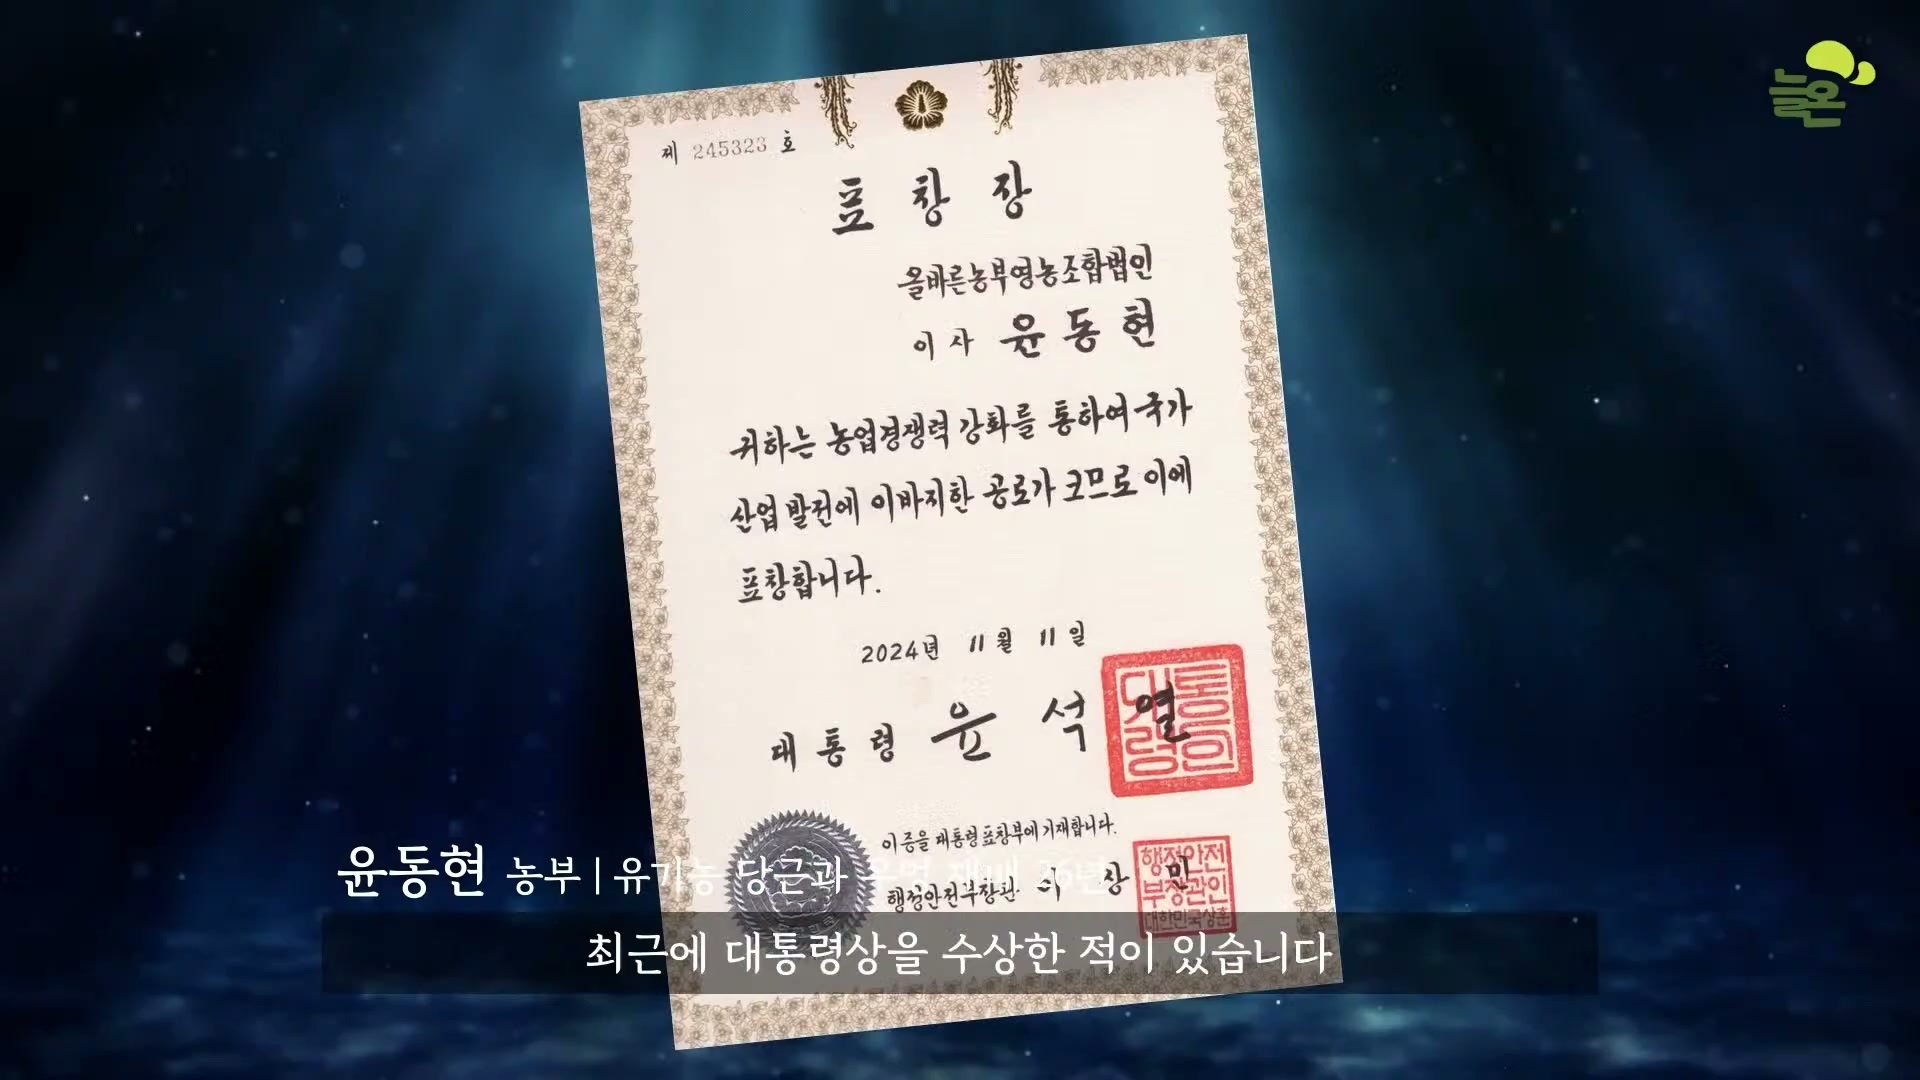 늘온
제 245323 호
표 창 장
올바른농부영농조합법인
이 사 윤 동 현
귀하는 농업경쟁력 강화를 통하여 국가
산업 발전에 이바지한 공로가 크므로 이에
표창합니다.
2024년 11월 11일
대 통 령 윤 석 열
대통령의인
이 증을 대통령표창부에 기재합니다.
행정안전부장관 이 상 민
행정안전
부장관인
대한민국상훈
윤동현 농부 | 유기농 당근과 무역 재배 26년
최근에 대통령상을 수상한 적이 있습니다